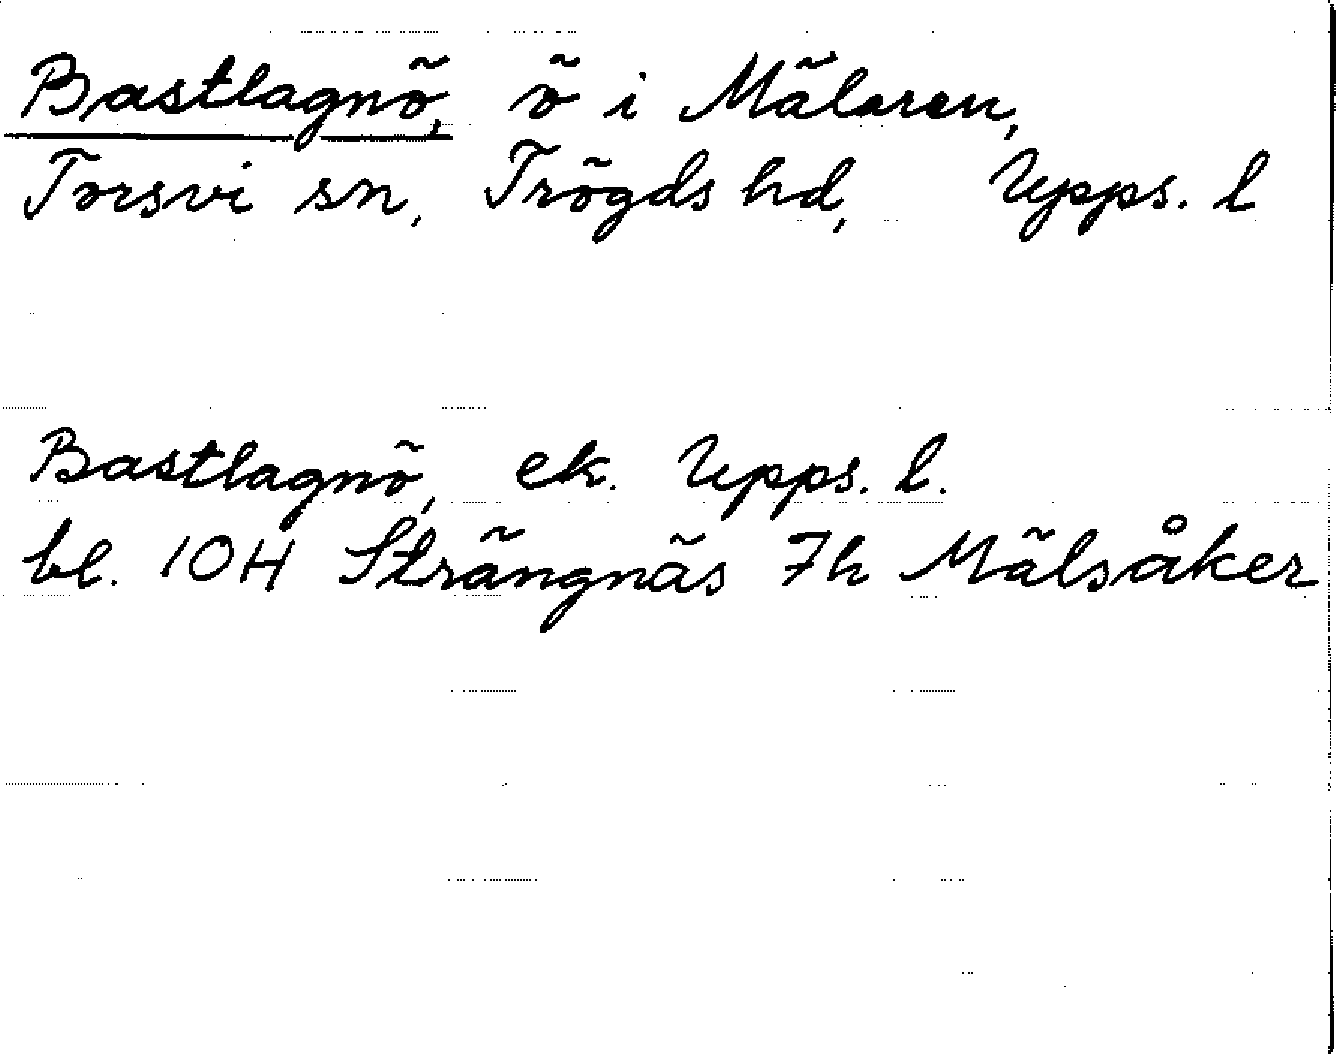 Bastlagnö, ö i Mälaren,
Torsvi sn, Trögds hd, Upps. l
Bastlagnö, ek. Upps. l.
bl. 10H Strängnäs 7h Mälsåker